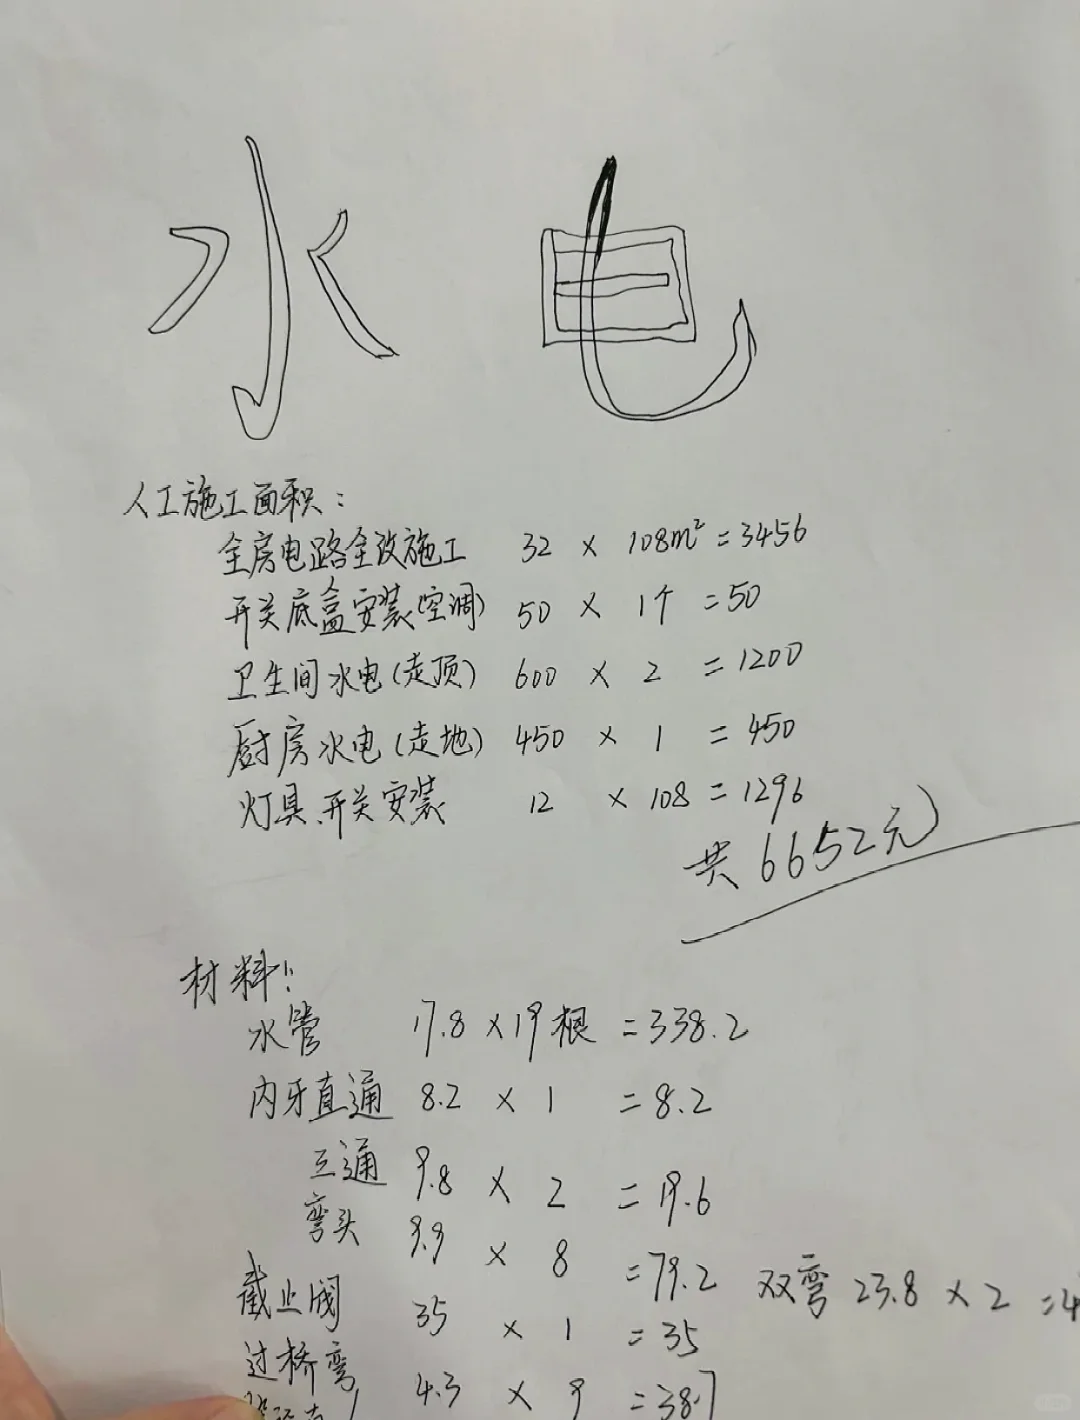 水 电
人工施工面积：
全房电路全改施工 32 × 108m² = 3456
开关底盒安装(空调) 50 × 1个 = 50
卫生间水电(走顶) 600 × 2 = 1200
厨房水电(走地) 450 × 1 = 450
灯具、开关安装 12 × 108 = 1296
共6652元
材料：
水管 17.8 × 19根 = 338.2
内牙直通 8.2 × 1 = 8.2
三通 9.8 × 2 = 19.6
弯头 9.9 × 8 = 79.2 双弯 23.8 × 2 = 4
截止阀 35 × 1 = 35
过桥弯 4.3 × 9 = 38.7